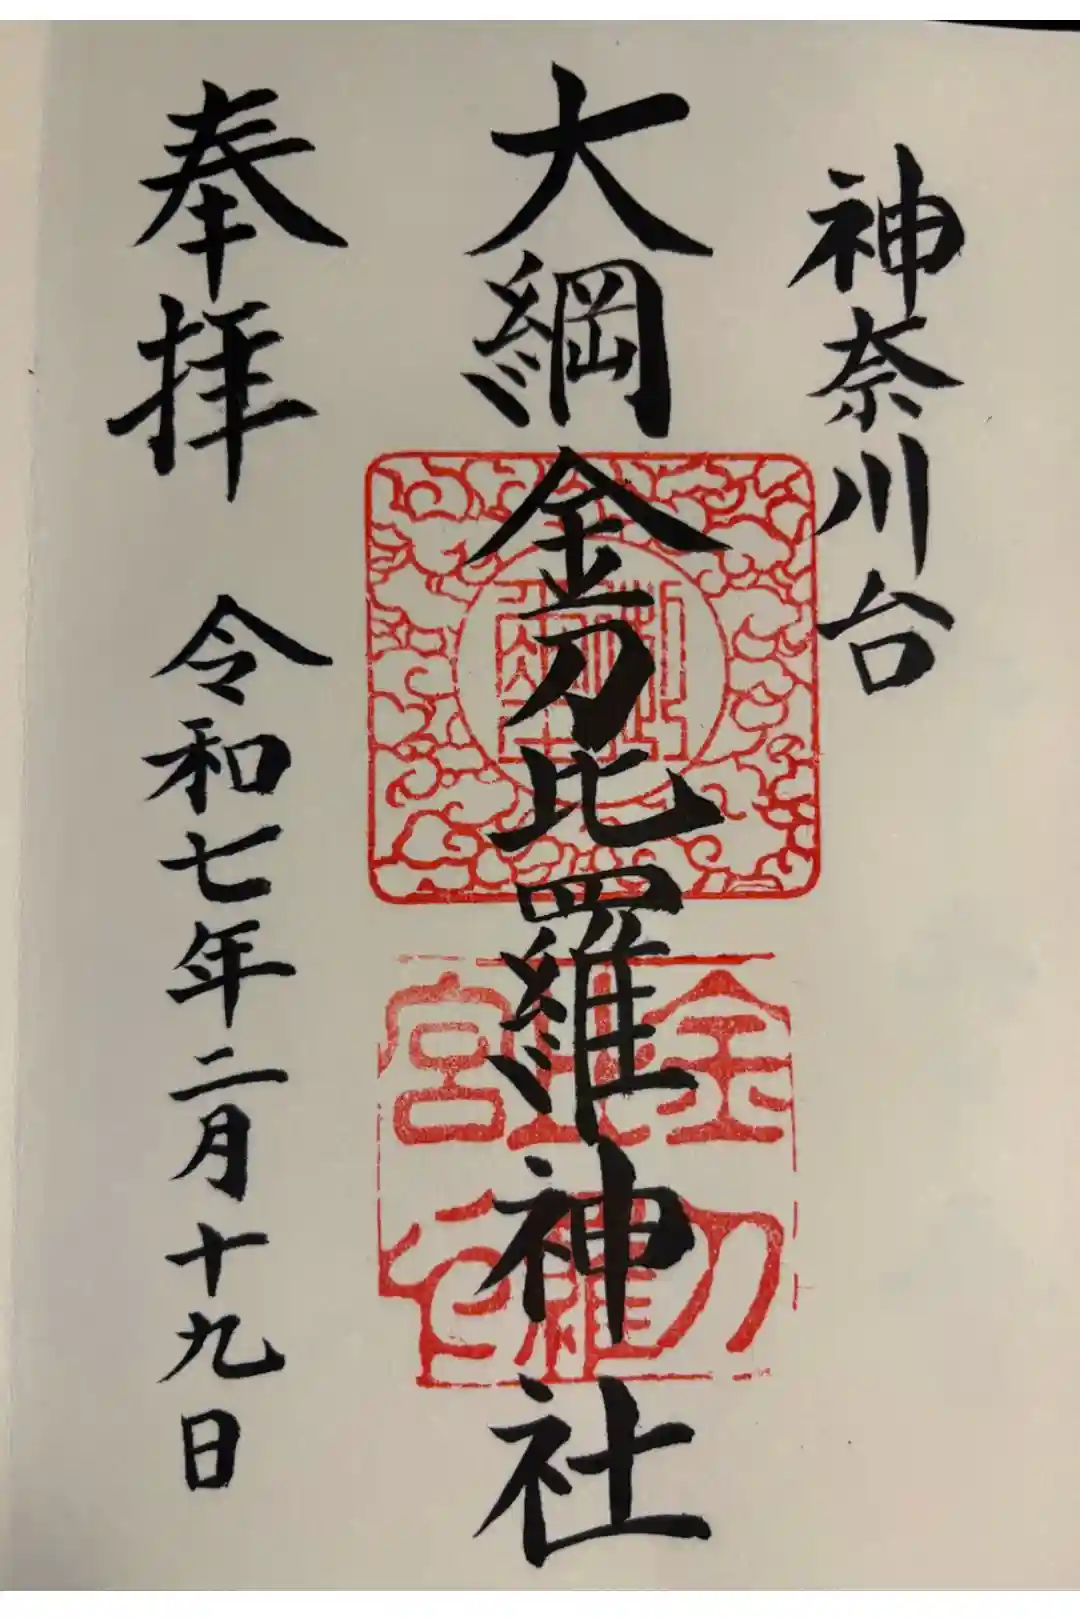 神奈川台
大綱金刀比羅神社
奉拝　令和七年二月十九日